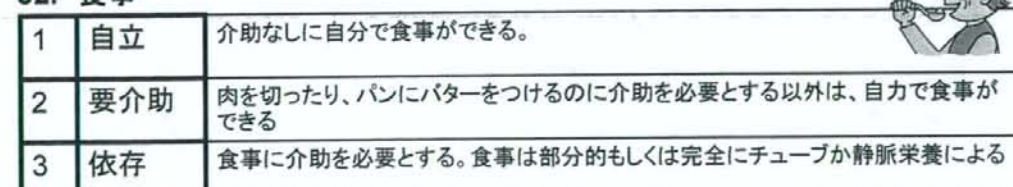 1 自立 介助なしに自分で食事ができる。
2 要介助 肉を切ったり、パンにバターをつけるのに介助を必要とする以外は、自力で食事が
できる
3 依存 食事に介助を必要とする。食事は部分的もしくは完全にチューブか静脈栄養による